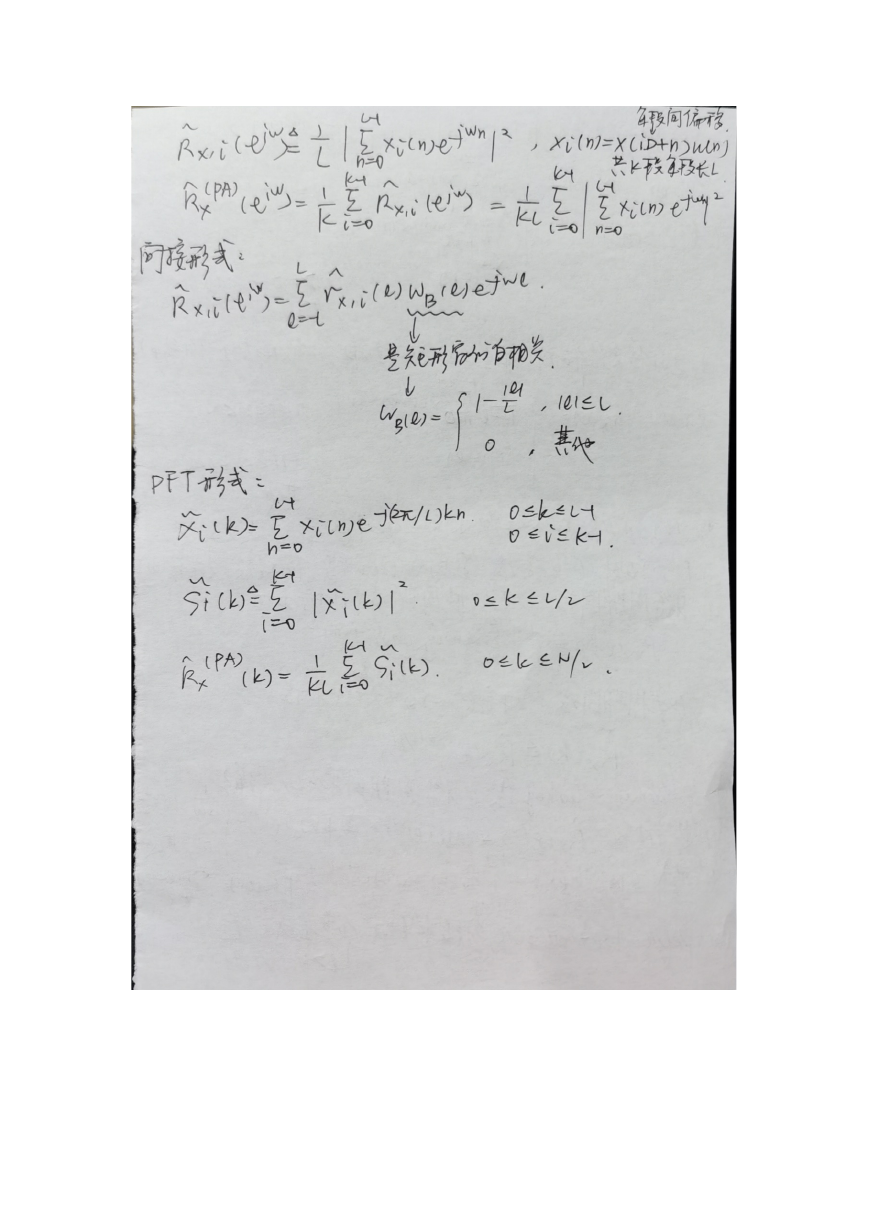 每段间偏移.
R̂x,i(e^{jw}) ≜ 1/L |∑_{n=0}^{L-1} xi(n)e^{-jwn}|², xi(n)=x(iD+n)w(n)
共K段每段长L
R̂x^{(PA)}(e^{jw}) = 1/K ∑_{i=0}^{K-1} R̂x,i(e^{jw}) = 1/KL ∑_{i=0}^{K-1} |∑_{n=0}^{L-1} xi(n)e^{-jwn}|²
间接形式:
R̂x,i(e^{jw}) = ∑_{l=-L}^{L} r̂x,i(l) WB(l) e^{-jwl}.
↓
是矩形窗的自相关.
↓
WB(l) = { 1-|l|/L , |l|≤L.
0 , 其他
DFT形式:
X̃i(k) = ∑_{n=0}^{L-1} xi(n)e^{-j(2π/L)kn} 0≤k≤L-1
0≤i≤K-1.
S̃i(k) ≜ ∑_{i=0}^{K-1} |X̃i(k)|². 0≤k≤L/2
R̂x^{(PA)}(k) = 1/KL ∑_{i=0}^{K-1} S̃i(k). 0≤k≤N/2.